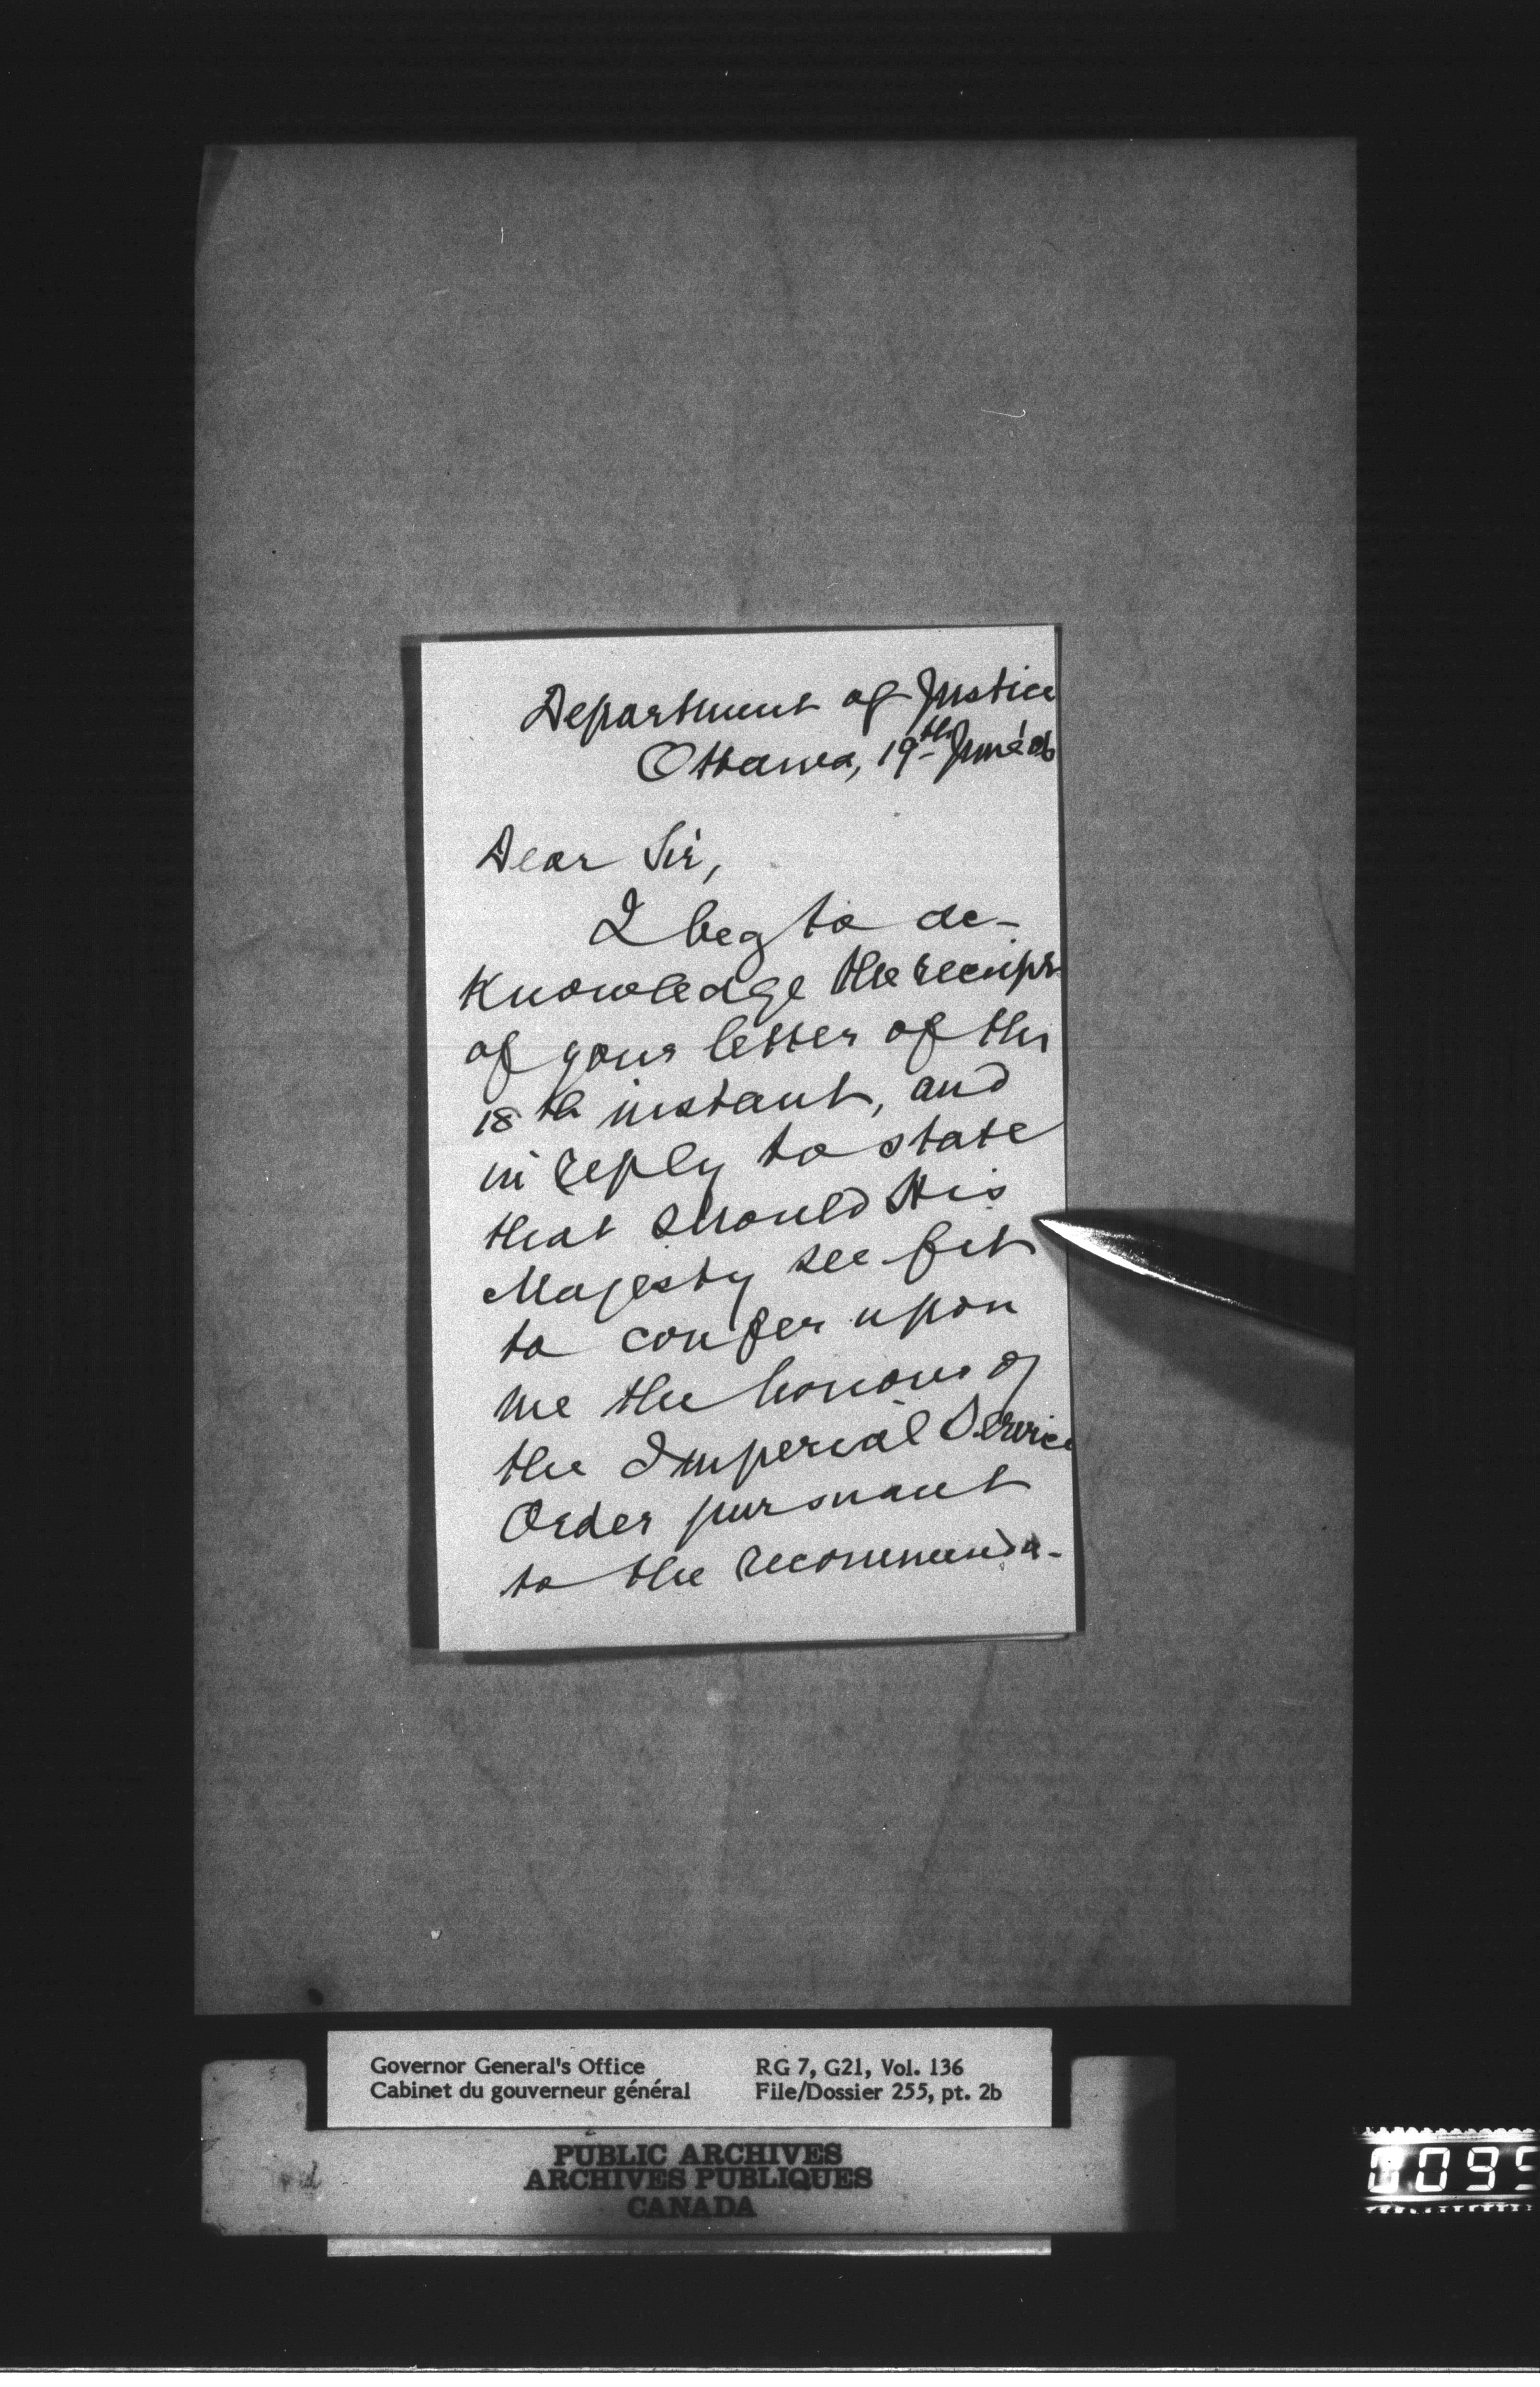 Department of Justice
Ottawa, 19th June '06
Dear Sir,
I beg to ac-
knowledge the receipt
of your letter of the
18th instant, and
in reply to state
that should His
Majesty see fit
to confer upon
me the honour of
the Imperial Service
Order pursuant
to the recommenda-
Governor General's Office
Cabinet du gouverneur général
RG 7, G21, Vol. 136
File/Dossier 255, pt. 2b
PUBLIC ARCHIVES
ARCHIVES PUBLIQUES
CANADA